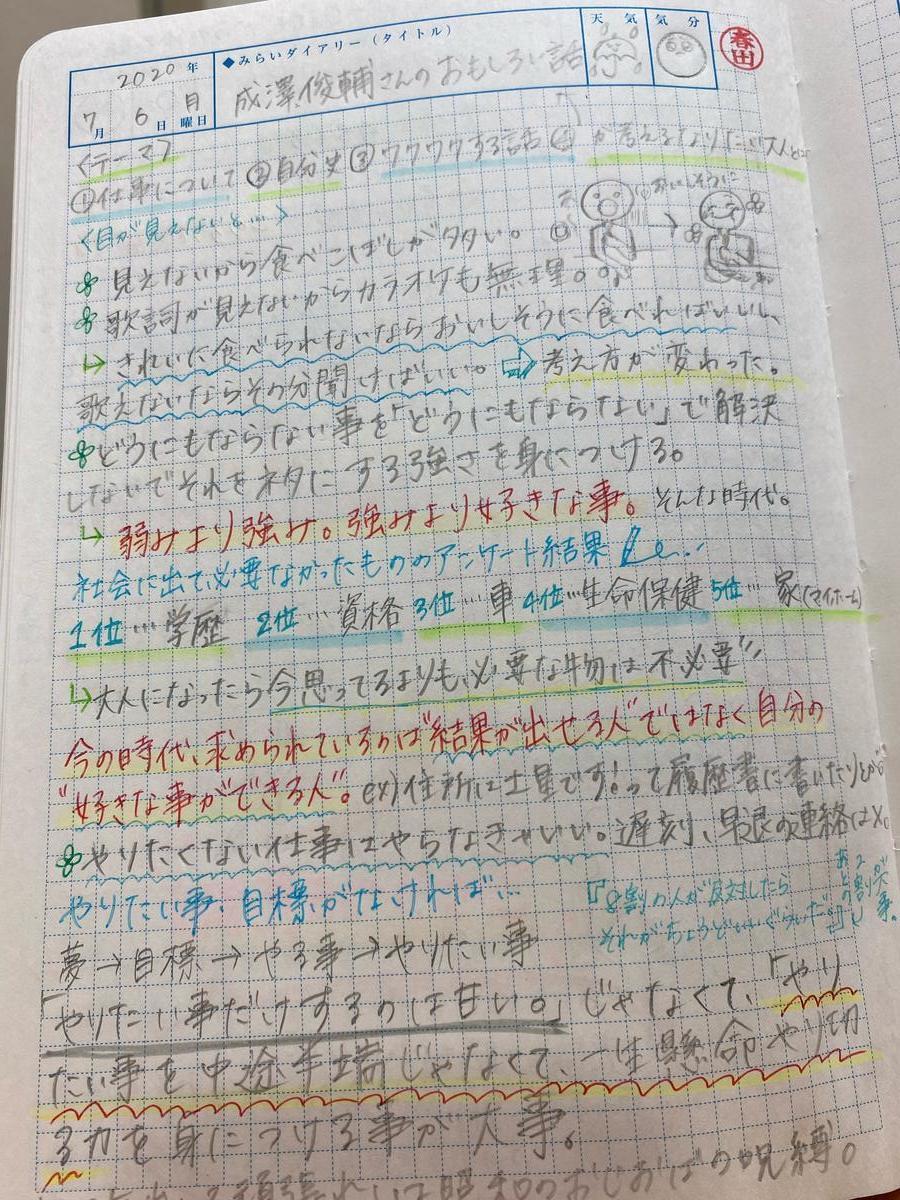 2020年 ◆みらいダイアリー(タイトル) 天気 気分
7月 6日 月曜日 成澤俊輔さんのおもしろい話 春田
〈テーマ〉
①仕事について ②自分史 ③ワクワクする話 ④ が考えるなりたい大人とは
〈目が見えないと…〉 おいしそうに
見えないから食べこぼしが多い。
歌詞が見えないからカラオケも無理。
↳ きれいに食べられないならおいしそうに食べればいいし、
歌えないならその分聞けばいい。⇨ 考え方が変わった。
どうにもならない事を「どうにもならない」で解決
しないでそれをネタにする強さを身につける。
↳ 弱みより強み。強みより好きな事。そんな時代。
社会に出て必要なかったもののアンケート結果
1位…学歴 2位…資格 3位…車 4位…生命保健 5位…家(マイホーム)
↳大人になったら今思ってるよりも"必要な物は不必要"
今の時代、求められているのは"結果が出せる人"ではなく自分の
"好きな事ができる人"。ex)住所は土星です!って履歴書に書いたりとか
やりたくない仕事はやらなきゃいい。遅刻、早退の連絡はX。
やりたい事、目標がなければ…
『8割の人が反対したら
それがちょうどいいぐらいだ。』
あとの2割が大事。
夢→目標→やる事→やりたい事
「やりたい事だけするのは甘い。」じゃなくて、「やり
たい事を中途半端じゃなくて、一生懸命やり切
る力を身につける事が大事。
頑張れは昭和のおじおばの呪縛。